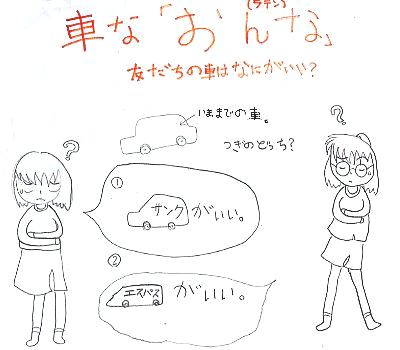 (ラテン)
車な「おんな」
友だちの車はなにがいい？
いままでの車。
つぎのどっち？
?
?
①
サンクがいい。
②
エスパスがいい。